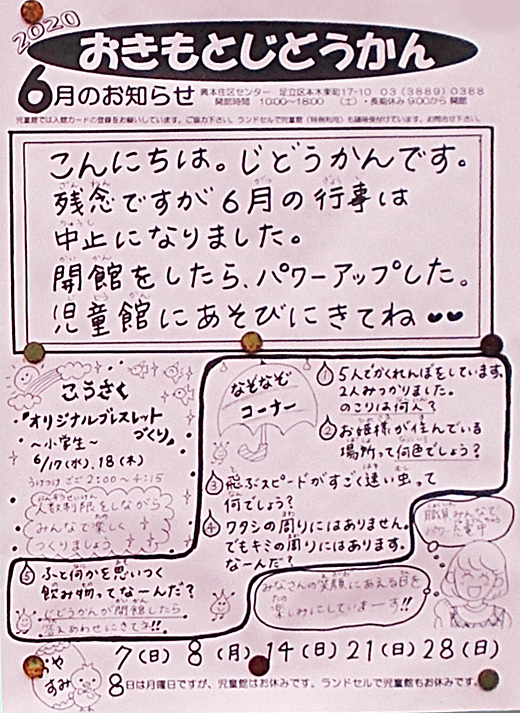 2020
おきもとじどうかん
6月のお知らせ
興本住区センター 足立区本木東町17-10 03(3889)0388
開館時間 10:00〜18:00 (土)・長期休み 9:00から開館
児童館では入館カードの登録をお願いしています。ご協力下さい。ランドセルで児童館(特例利用)も随時受付けています。お問合せ下さい。
こんにちは。じどうかんです。
残念ですが6月の行事は
中止になりました。
開館をしたら、パワーアップした。
児童館にあそびにきてね
こうさく
"オリジナルブレスレット
づくり"
〜小学生〜
6/17(水)、18(木)
うけつけ ごご2:00〜4:15
人数制限をしながら
みんなで楽しく
つくりましょう
なぞなぞ
コーナー
①5人でかくれんぼをしています。
2人みつかりました。
のこりは何人?
②お姫様が住んでいる
場所って何色でしょう?
③飛ぶスピードがすごく速い虫って
何でしょう?
④ワタシの周りにはありません。
でもキミの周りにはあります。
なーんだ?
⑤ふと何かを思いつく
飲み物ってなーんだ?
じどうかんが開館したら
答えあわせにきてネ!!
職員みんなで
パワー充電中
みなさんの笑顔にあえる日を
楽しみにしていまーす!!
おやすみ
7(日) 8(月) 14(日) 21(日) 28(日)
8日は月曜日ですが、児童館はお休みです。ランドセルで児童館もお休みです。